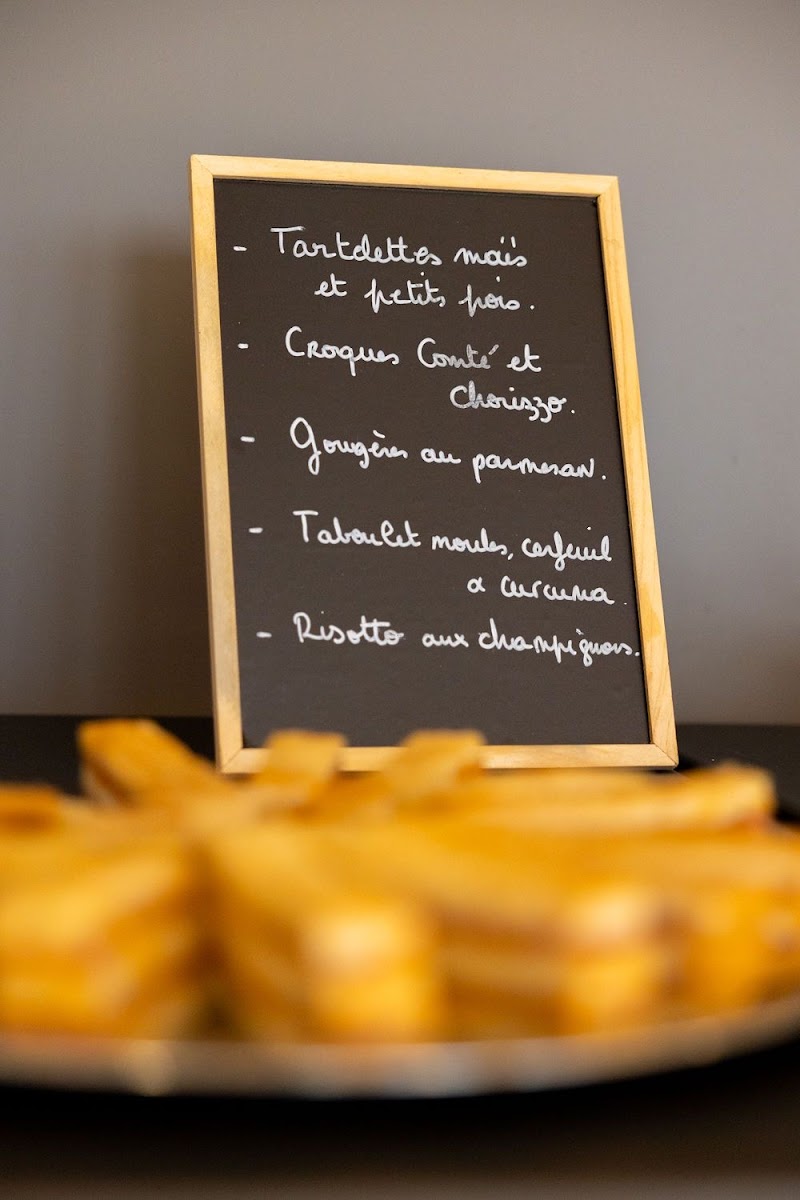 - Tartelettes maïs
et petits pois.
- Croques Comté et
Chorizzo.
- Gougères au parmesan.
- Taboulet moules, cerfeuil
& curcuma.
- Risotto aux champignons.